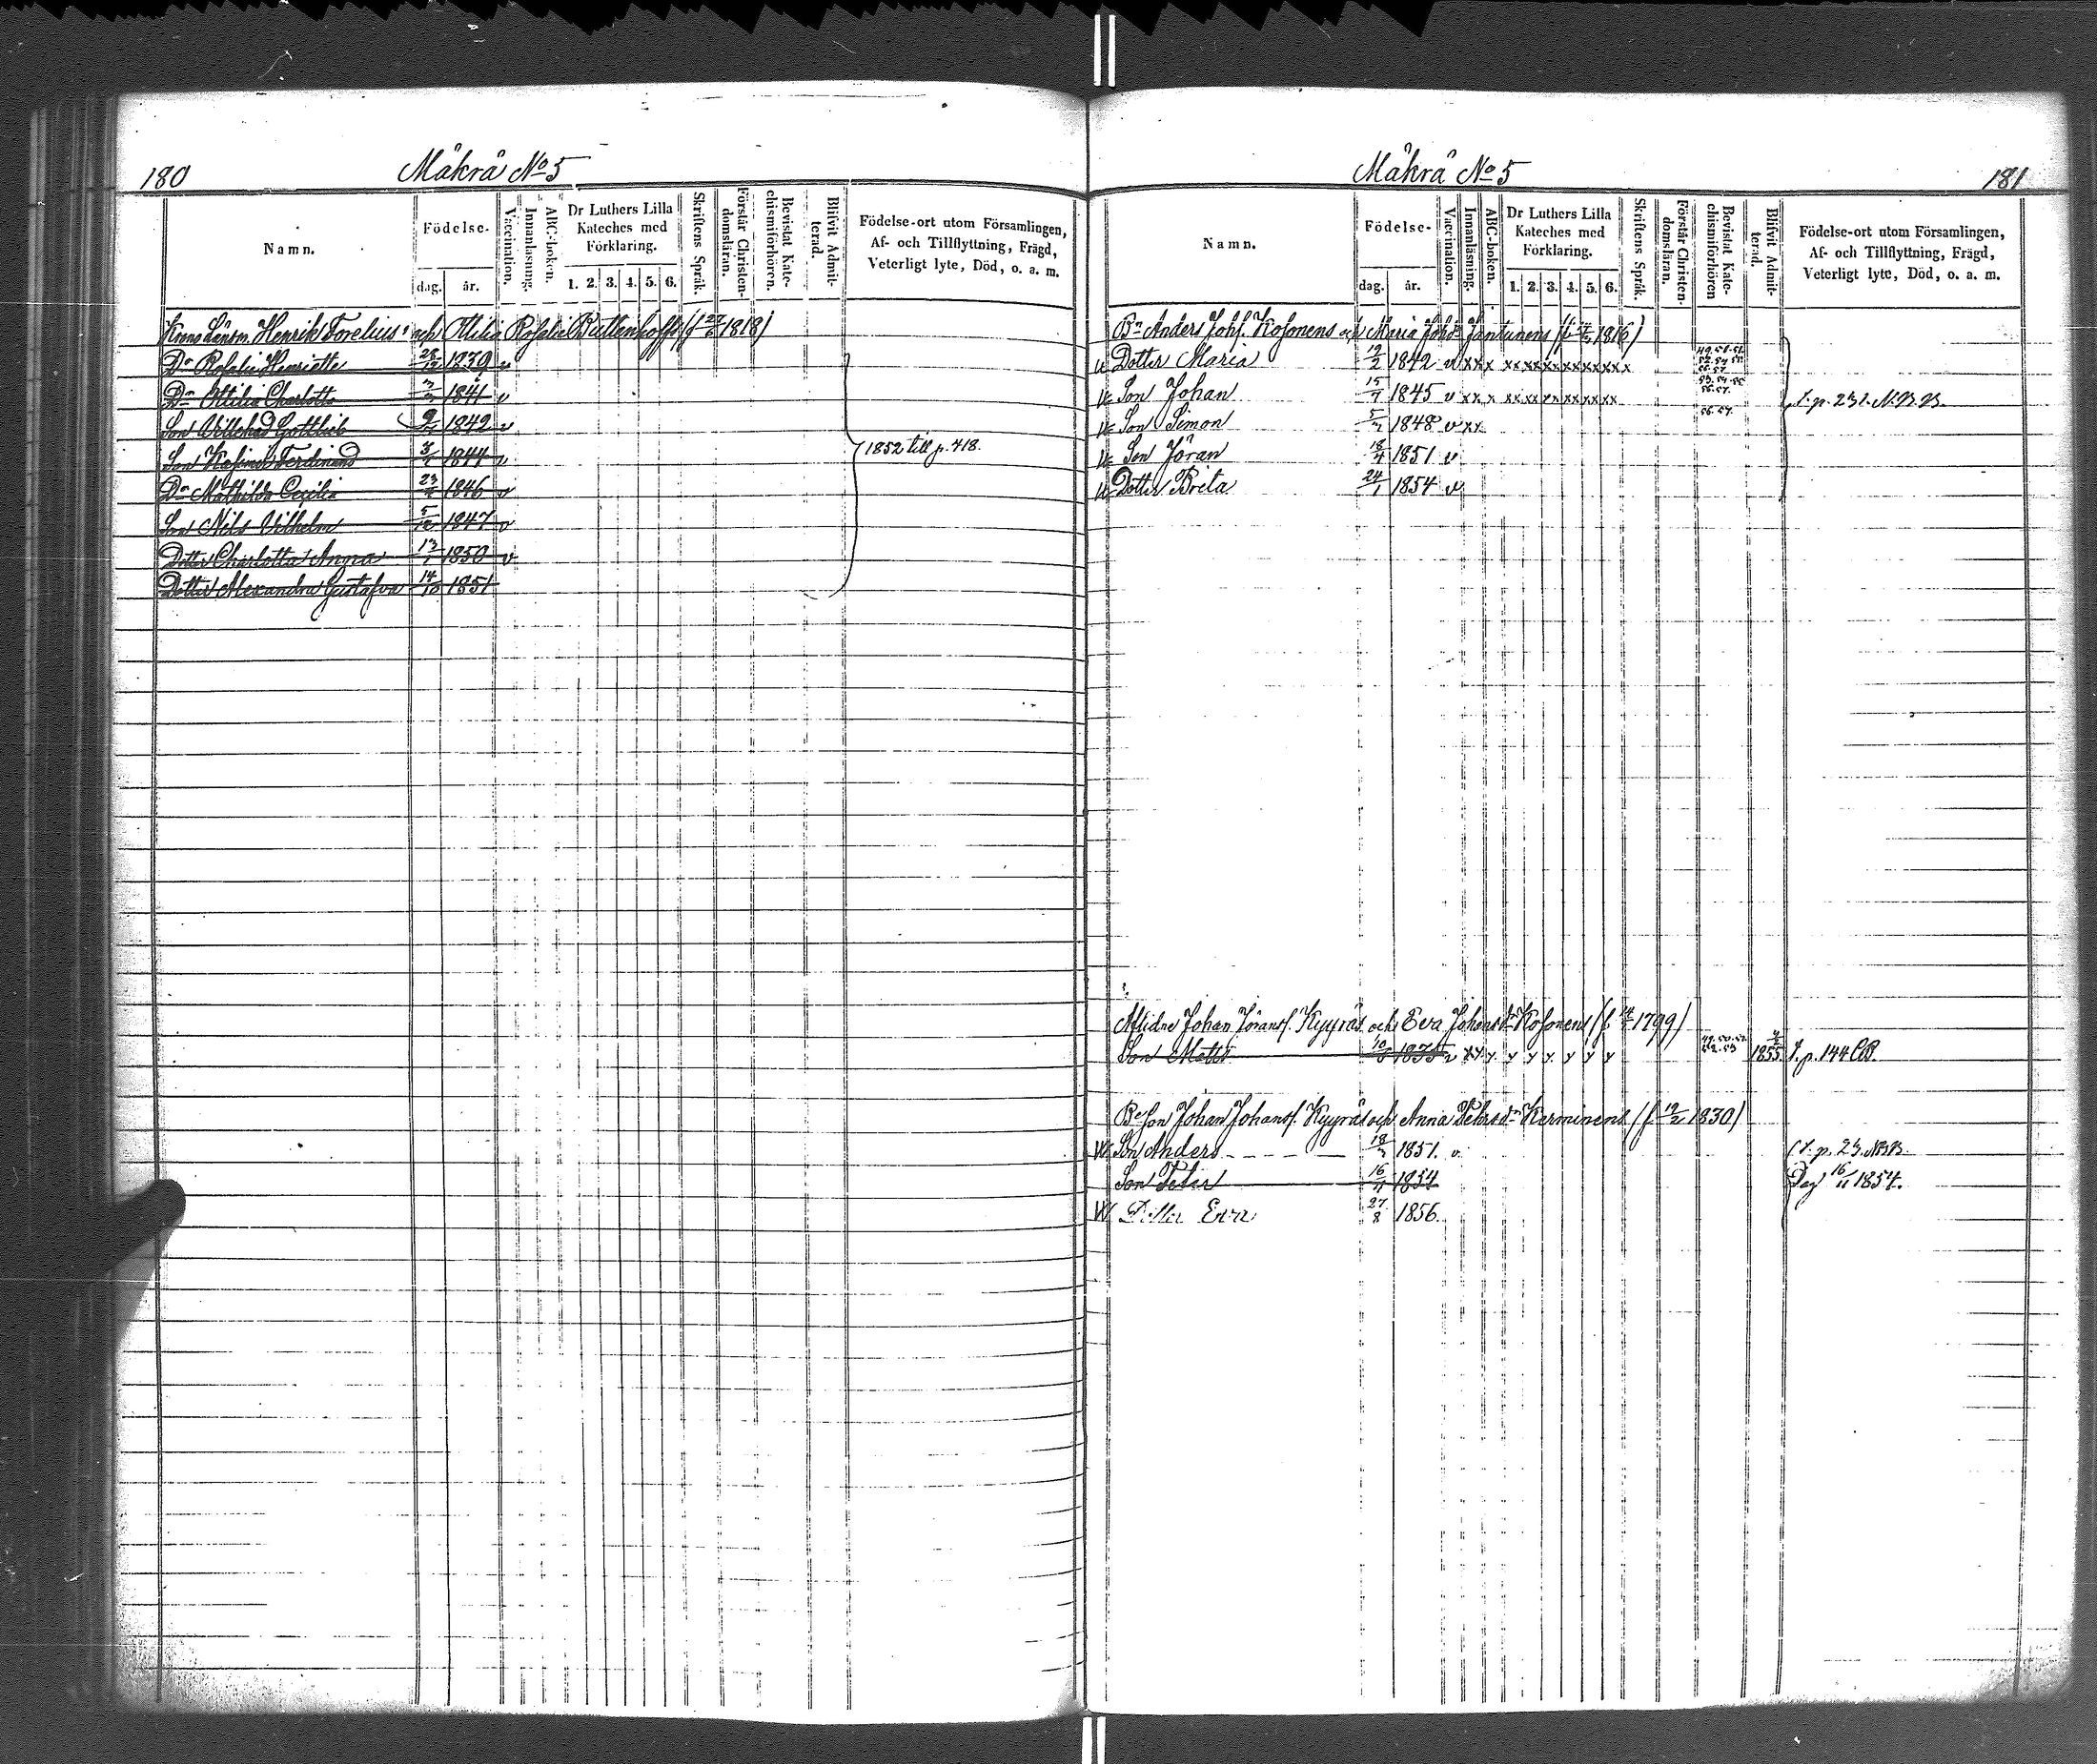 180 Måkrå No 5
Namn. Födelse- dag. år. Vaccination. Innanläsning. ABC-boken. Dr Luthers Lilla Kateches med Förklaring. 1. 2. 3. 4. 5. 6. Skriftens Språk. Förstår Christendomsläran. Bevistat Katechismiförhören. Blifvit Admitterad. Födelse-ort utom Församlingen, Af- och Tillflyttning, Frägd, Veterligt lyte, Död, o. a. m.
Krono Länsm. Henrik Forelius och Ottilia Rosalia Kuttenhoff (f 1818)
Dr Rosalie Henriette 1839 v
Dr Ottilia Charlotta 1841 v
Son Villehad Gottlieb 1842 v
Son Kasimir Ferdinand 1844 v
1852 till p. 418.
Dr Mathilda Cecilia 1846 v
Son Nils Vilhelm 5/12 1847 v
Dotter Charlotta Anna 13/1 1850 v
Dotter Alexandra Gustafva 14/10 1851
Måkrå No 5 181
Namn. Födelse- dag. år. Vaccination. Innanläsning. ABC-boken. Dr Luthers Lilla Kateches med Förklaring. 1. 2. 3. 4. 5. 6. Skriftens Språk. Förstår Christendomsläran. Bevistat Katechismiförhören Blifvit Admitterad. Födelse-ort utom Församlingen, Af- och Tillflyttning, Frägd, Veterligt lyte, Död, o. a. m.
Br Anders Johs. Kosonens och Maria Johsdr Jantunens (f. 1816)
Dotter Maria 19/2 1842 v xx x xx xx xx xx xx xx x
Son Johan 15/7 1845 v xx x xx xx xx xx xx xx
T. p. 231. N.B.B.
Son Simon 1848 v xx 56. 57.
Son Jöran 18/4 1851 v
Dotter Brita 24/1 1854 v
Aflidne Johan Jöranss. Kyyräs och Eva Johansdr Kosonens (f. 1799)
Son Matts 1835 v xx x x x x x x x 1855. T. p. 144 CB.
Be son Johan Johanss. Kyyräs och Anna Petersdr Karminens (f. 19/2 1830)
Son Anders 18/3 1851. v. T. p. 23. NBB.
Son Peter 16/11 1854 Död 16/11 1854.
Dotter Eva 27/8 1856.